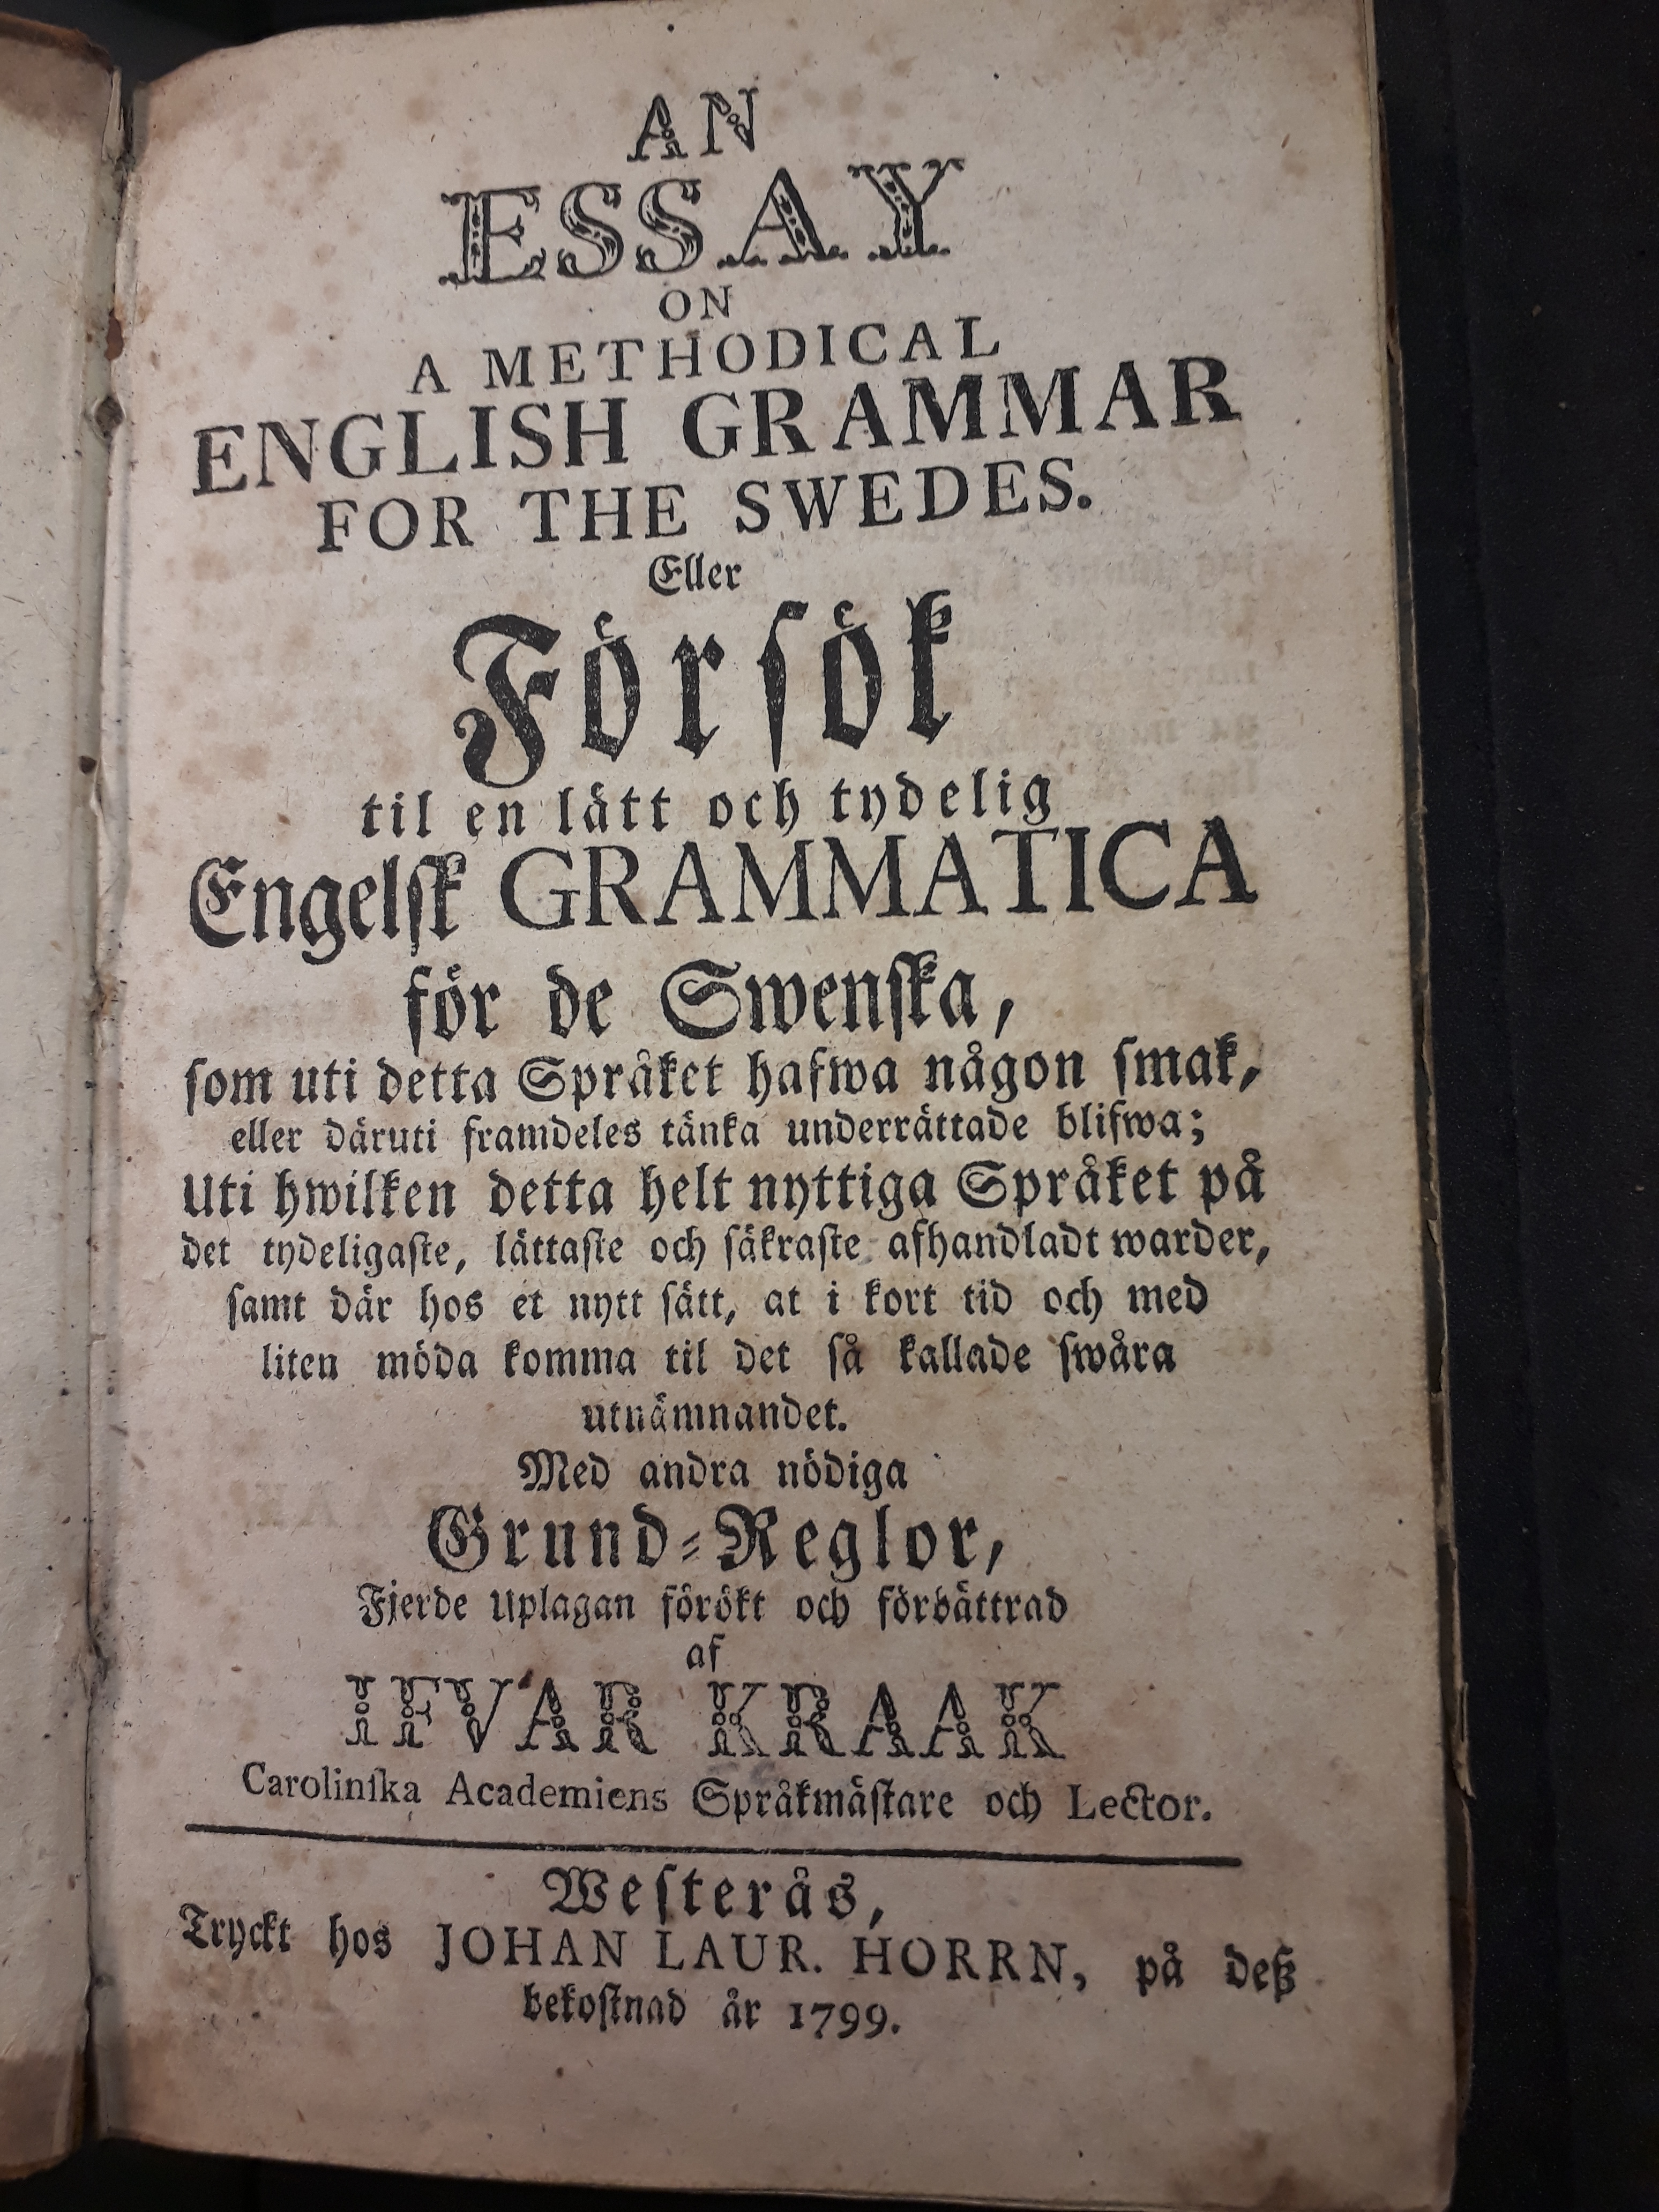 AN
ESSAY
ON
A METHODICAL
ENGLISH GRAMMAR
FOR THE SWEDES.
Eller
Förſök
til en lätt och tydelig
Engelſk GRAMMATICA
för de Swenſka,
ſom uti detta Språket hafwa någon ſmak,
eller däruti framdeles tänka underrättade blifwa;
Uti hwilken detta helt nyttiga Språket på
det tydeligaſte, lättaſte och ſäkraſte afhandladt warder,
ſamt där hos et nytt ſätt, at i kort tid och med
liten möda komma til det ſå kallade ſwåra
utnämnandet.
Med andra nödiga
Grund-Reglor,
Fjerde Uplagan förökt och förbättrad
af
IFVAR KRAAK
Carolinſka Academiens Språkmäſtare och Lector.
Weſterås,
Tryckt hos JOHAN LAUR. HORRN, på deß
bekoſtnad år 1799.